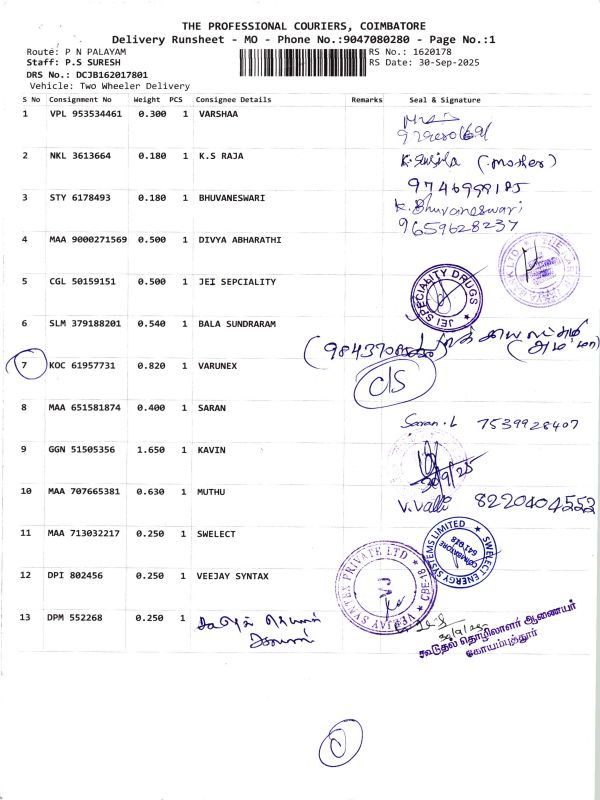 THE PROFESSIONAL COURIERS, COIMBATORE
Delivery Runsheet - MO - Phone No.:9047080280 - Page No.:1
Route: P N PALAYAM RS No.: 1620178
Staff: P.S SURESH RS Date: 30-Sep-2025
DRS No.: DCJB162017801
Vehicle: Two Wheeler Delivery
S No Consignment No Weight PCS Consignee Details Remarks Seal & Signature
1 VPL 953534461 0.300 1 VARSHAA
2 NKL 3613664 0.180 1 K.S RAJA
K. Sujila (mother)
3 STY 6178493 0.180 1 BHUVANESWARI
K. Bhuvaneswari
9659628237
4 MAA 9000271569 0.500 1 DIVYA ABHARATHI
5 CGL 50159151 0.500 1 JEI SEPCIALITY
JEI SPECIALITY DRUGS
6 SLM 379188201 0.540 1 BALA SUNDRARAM
(அம்மா)
7 KOC 61957731 0.820 1 VARUNEX
C/S
8 MAA 651581874 0.400 1 SARAN
Saran.L 7539928407
9 GGN 51505356 1.650 1 KAVIN
30/9/25
10 MAA 707665381 0.630 1 MUTHU
V. Valli 8220404552
11 MAA 713032217 0.250 1 SWELECT
SWELECT ENERGY SYSTEMS LIMITED
COIMBATORE
641 018
12 DPI 802456 0.250 1 VEEJAY SYNTAX
VEEJAY SYNTEX PRIVATE LTD
CBE-18
13 DPM 552268 0.250 1
30/9/25
கூடுதல் தொழிலாளர் ஆணையர்
கோயம்புத்தூர்